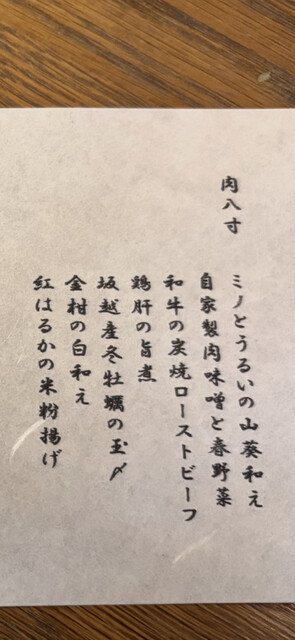 肉八寸
ミノとうるいの山葵和え
自家製肉味噌と春野菜
和牛の炭焼ローストビーフ
鶏肝の旨煮
坂越産冬牡蠣の玉〆
金柑の白和え
紅はるかの米粉揚げ